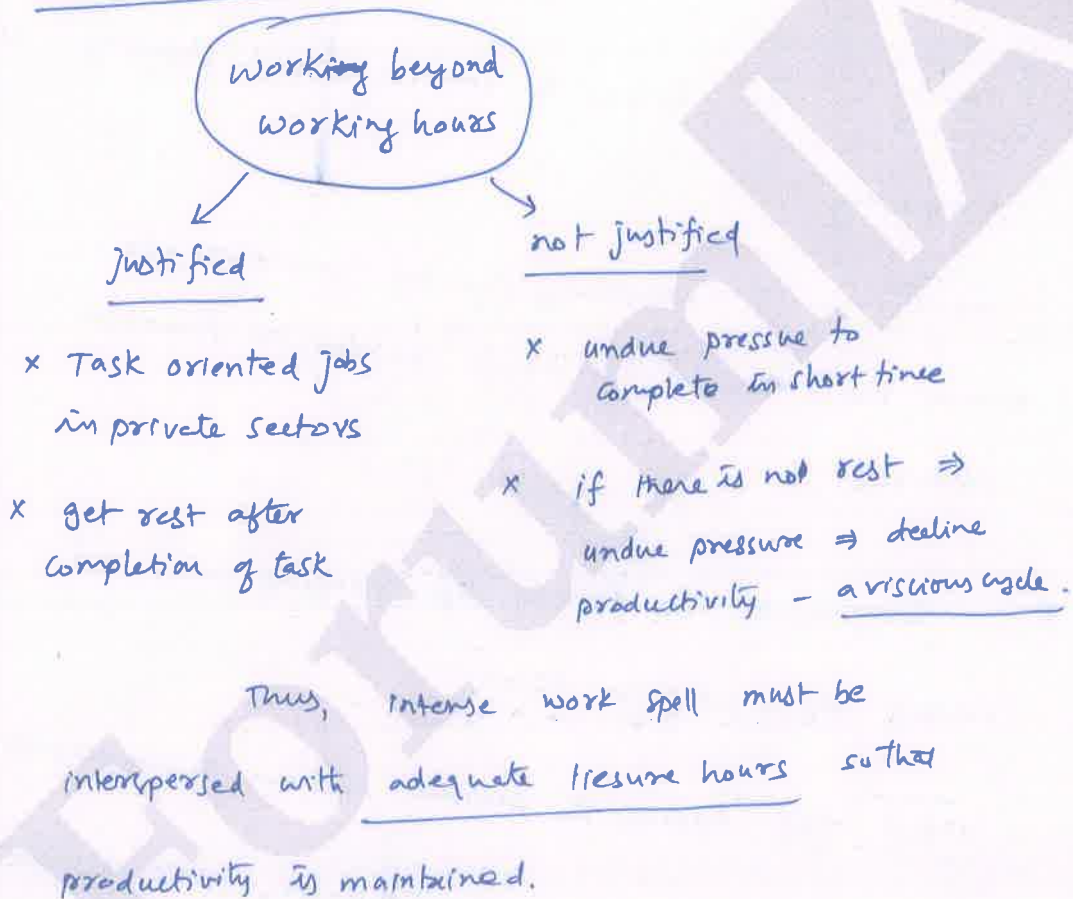 working beyond
working hours
justified
x Task oriented jobs
in private sectors
x get rest after
completion of task
not justified
x undue pressue to
complete in short time
x if there is not rest ⇒
undue pressure ⇒ decline
productivity - a viscious cycle.
Thus, intense work spell must be
interspersed with adequate liesure hours so that
productivity is maintained.
ForumIA